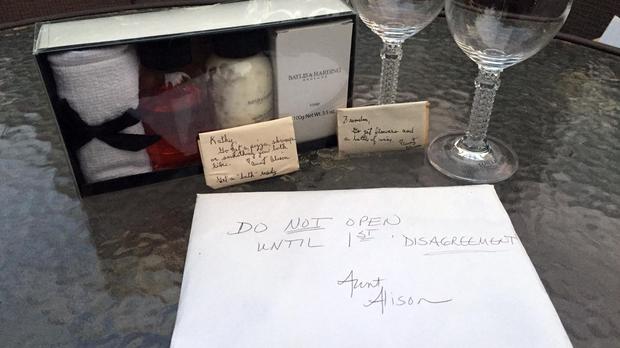 BAYLIS & HARDING
SOAP
100g Net Wt. 3.5 oz.
Kathy,
Go get a pizza, shrimp
or something you both
like. Aunt Alison
Get a "bath" ready
Brandon,
Go get flowers and
a bottle of wine.
DO NOT OPEN
UNTIL 1ST DISAGREEMENT
Aunt
Alison